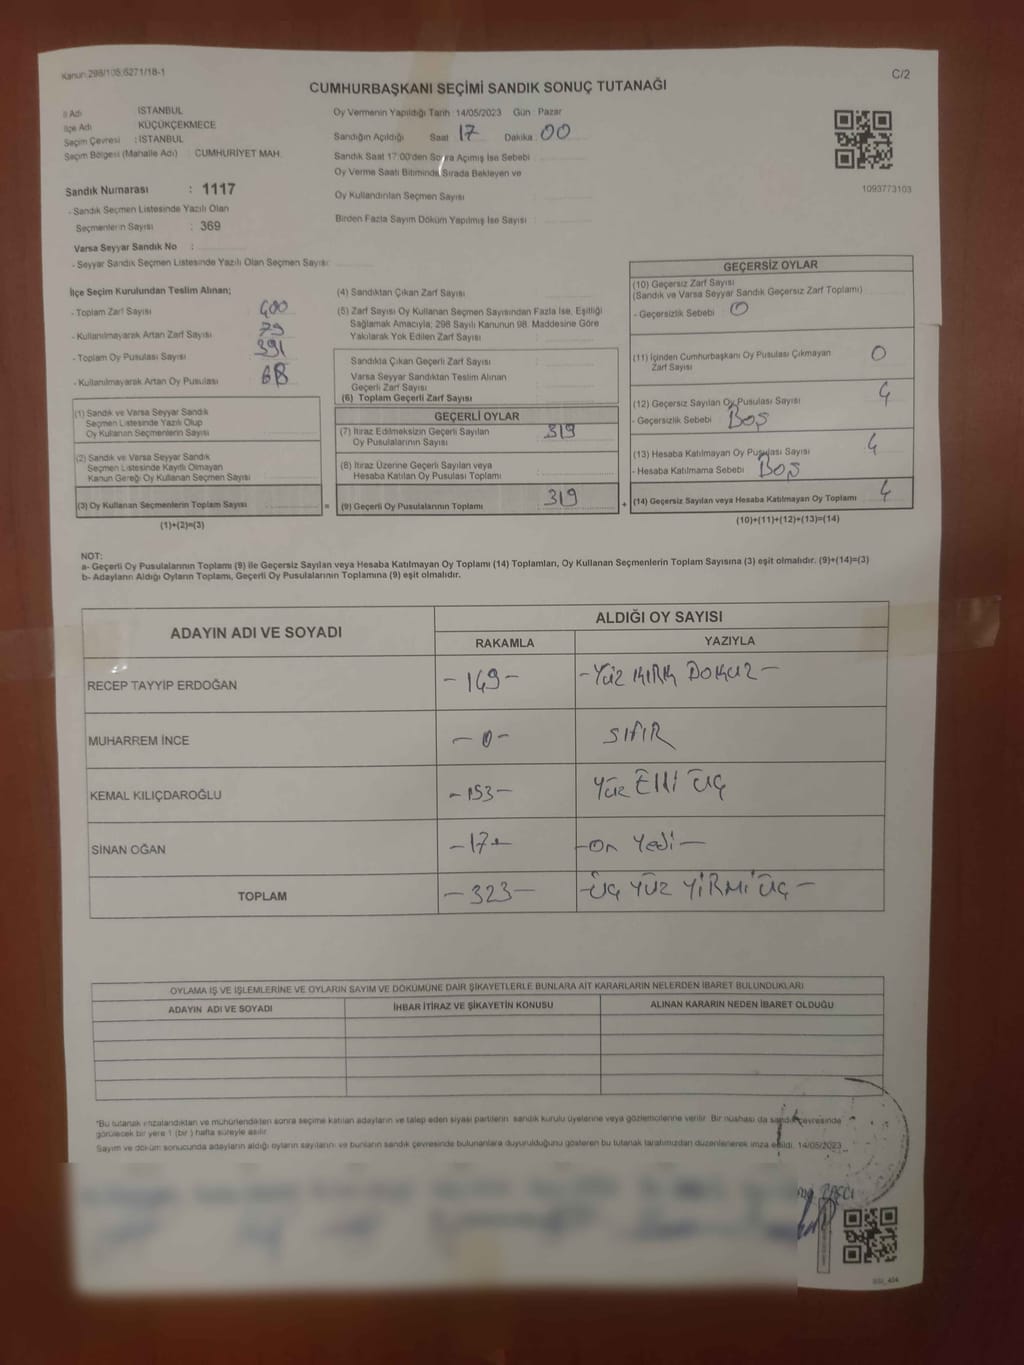 Kanun:298/105;6271/18-1
C/2
CUMHURBAŞKANI SEÇİMİ SANDIK SONUÇ TUTANAĞI
İl Adı İSTANBUL
İlçe Adı KÜÇÜKÇEKMECE
Seçim Çevresi : İSTANBUL
Seçim Bölgesi (Mahalle Adı) : CUMHURİYET MAH.
Oy Vermenin Yapıldığı Tarih 14/05/2023 Gün Pazar
Sandığın Açıldığı Saat 17 Dakika 00
Sandık Saat 17:00'den Sonra Açımış İse Sebebi
Oy Verme Saati Bitiminde Sırada Bekleyen ve
Oy Kullandırılan Seçmen Sayısı
Birden Fazla Sayım Döküm Yapılmış İse Sayısı
1093773103
Sandık Numarası : 1117
- Sandık Seçmen Listesinde Yazılı Olan
Seçmenlerin Sayısı : 369
Varsa Seyyar Sandık No :
- Seyyar Sandık Seçmen Listesinde Yazılı Olan Seçmen Sayısı:
İlçe Seçim Kurulundan Teslim Alınan;
- Toplam Zarf Sayısı 400
- Kullanılmayarak Artan Zarf Sayısı 79
- Toplam Oy Pusulası Sayısı 391
- Kullanılmayarak Artan Oy Pusulası 68
(1) Sandık ve Varsa Seyyar Sandık
Seçmen Listesinde Yazılı Olup
Oy Kullanan Seçmenlerin Sayısı
(2) Sandık ve Varsa Seyyar Sandık
Seçmen Listesinde Kayıtlı Olmayan
Kanun Gereği Oy Kullanan Seçmen Sayısı
(3) Oy Kullanan Seçmenlerin Toplam Sayısı
(1)+(2)=(3)
=
(4) Sandıktan Çıkan Zarf Sayısı
(5) Zarf Sayısı Oy Kullanan Seçmen Sayısından Fazla İse, Eşitliği
Sağlamak Amacıyla; 298 Sayılı Kanunun 98. Maddesine Göre
Yakılarak Yok Edilen Zarf Sayısı
Sandıkta Çıkan Geçerli Zarf Sayısı
Varsa Seyyar Sandıktan Teslim Alınan
Geçerli Zarf Sayısı
(6) Toplam Geçerli Zarf Sayısı
GEÇERLİ OYLAR
(7) İtiraz Edilmeksizin Geçerli Sayılan
Oy Pusulalarının Sayısı 319
(8) İtiraz Üzerine Geçerli Sayılan veya
Hesaba Katılan Oy Pusulası Toplamı
(9) Geçerli Oy Pusulalarının Toplamı 319
+
GEÇERSİZ OYLAR
(10) Geçersiz Zarf Sayısı
(Sandık ve Varsa Seyyar Sandık Geçersiz Zarf Toplamı)
- Geçersizlik Sebebi 0
(11) İçinden Cumhurbaşkanı Oy Pusulası Çıkmayan
Zarf Sayısı 0
(12) Geçersiz Sayılan Oy Pusulası Sayısı 4
- Geçersizlik Sebebi Boş
(13) Hesaba Katılmayan Oy Pusulası Sayısı 4
- Hesaba Katılmama Sebebi Boş
(14) Geçersiz Sayılan veya Hesaba Katılmayan Oy Toplamı 4
(10)+(11)+(12)+(13)=(14)
NOT:
a- Geçerli Oy Pusulalarının Toplamı (9) ile Geçersiz Sayılan veya Hesaba Katılmayan Oy Toplamı (14) Toplamları, Oy Kullanan Seçmenlerin Toplam Sayısına (3) eşit olmalıdır. (9)+(14)=(3)
b- Adayların Aldığı Oyların Toplamı, Geçerli Oy Pusulalarının Toplamına (9) eşit olmalıdır.
ADAYIN ADI VE SOYADI
ALDIĞI OY SAYISI
RAKAMLA YAZIYLA
RECEP TAYYİP ERDOĞAN -149- -Yüz KIRK DOKUZ-
MUHARREM İNCE -0- SIFIR
KEMAL KILIÇDAROĞLU -153- Yüz Elli Üç
SİNAN OĞAN -17- -On Yedi-
TOPLAM -323- -Üç YÜZ YİRMİ Üç-
OYLAMA İŞ VE İŞLEMLERİNE VE OYLARIN SAYIM VE DÖKÜMÜNE DAİR ŞİKAYETLERLE BUNLARA AİT KARARLARIN NELERDEN İBARET BULUNDUKLARI
ADAYIN ADI VE SOYADI İHBAR İTİRAZ VE ŞİKAYETİN KONUSU ALINAN KARARIN NEDEN İBARET OLDUĞU
*Bu tutanak imzalandıktan ve mühürlendikten sonra seçime katılan adayların ve talep eden siyasi partilerin sandık kurulu üyelerine veya gözlemcilerine verilir. Bir nüshası da sandık çevresinde
görülecek bir yere 1 (bir) hafta süreyle asılır.
Sayım ve döküm sonucunda adayların aldığı oyların sayılarını ve bunların sandık çevresinde bulunanlara duyurulduğunu gösteren bu tutanak tarafımızdan düzenlenerek imza edildi. 14/05/2023